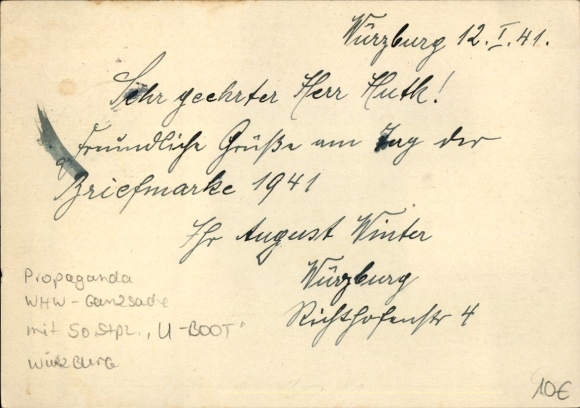 Würzburg 12. I. 41.
Sehr geehrter Herr Huth!
Freundliche Grüße am Tag der
Briefmarke 1941
Ihr August Winter
Würzburg
Richthofenstr 4
Propaganda
WHW-Ganzsache
mit So Stpl. „U-BOOT"
Würzburg
10€